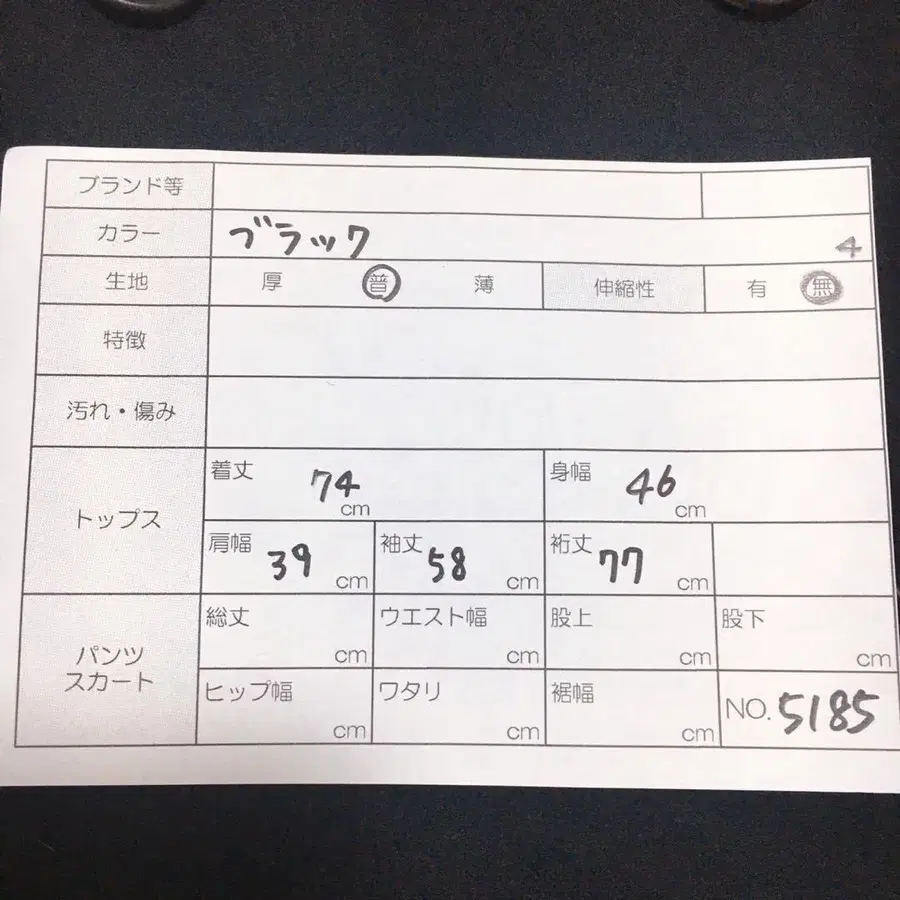 ブランド等
カラー ブラック 4
生地 厚 普 薄 伸縮性 有 無
特徴
汚れ・傷み
トップス
着丈 74 cm 身幅 46 cm
肩幅 39 cm 袖丈 58 cm 裄丈 77 cm
パンツ
スカート
総丈 cm ウエスト幅 cm 股上 cm 股下 cm
ヒップ幅 cm ワタリ cm 裾幅 cm NO. 5185